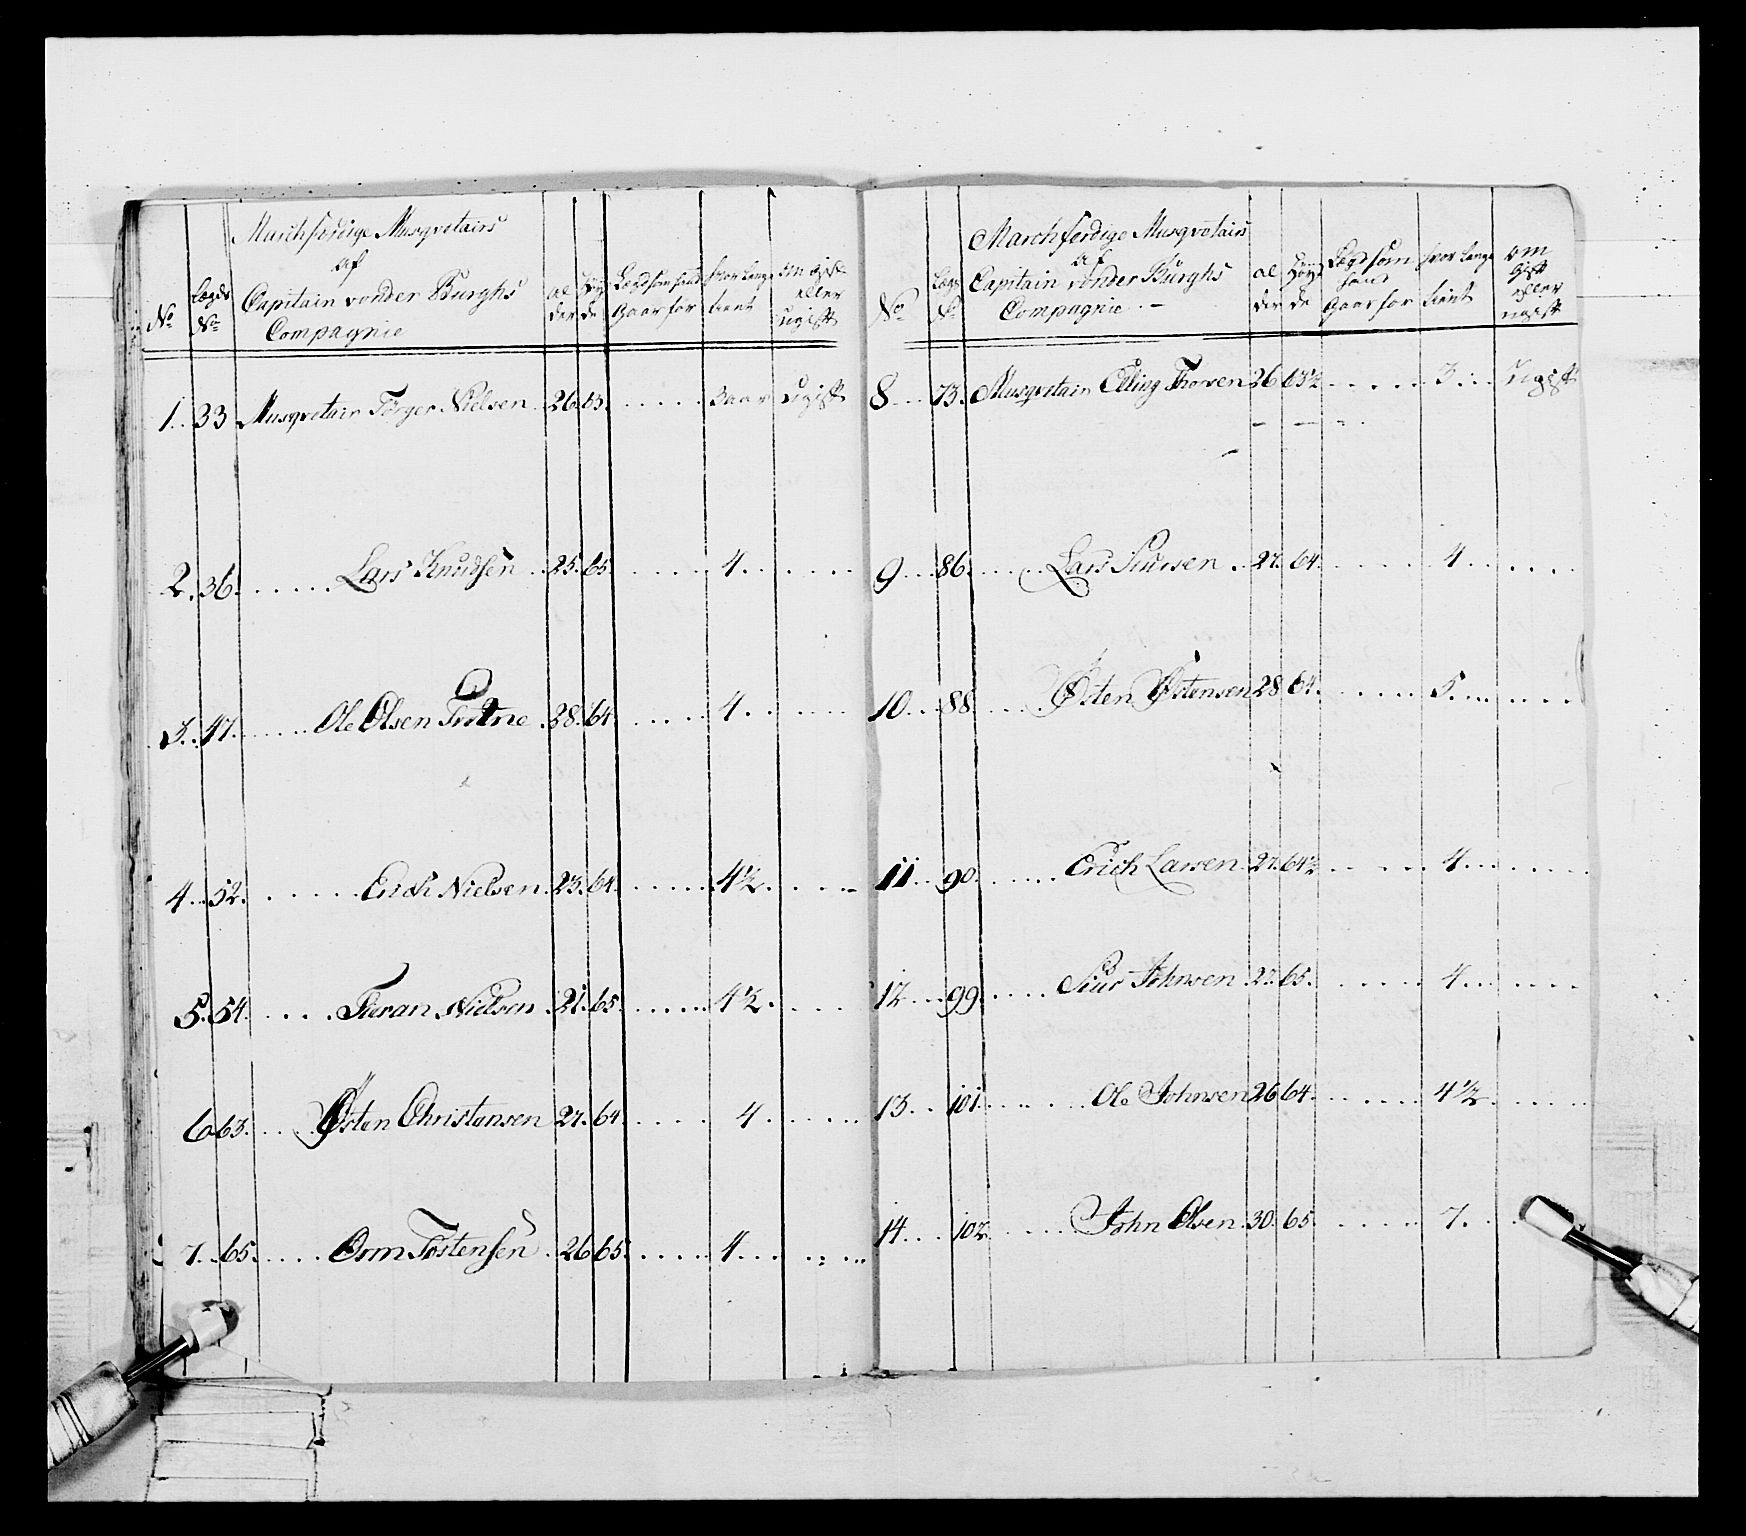 Marchferdige Musqvetairs
af
Capitain vonder Burghs
Compagnie
No
Lægds No
al der
Høy de
Lægd som hand Gaar for
hvor lenge tient
om gift eller ugift
1. 33 Musqvetair Törger Nielsen 26. 63. 3 aar ugift
2. 36. Lars Knudsen 25. 65. 4
3. 47. Ole Olsen 28. 64. 4
4. 52. Erich Nielsen 23. 64. 4½
5. 54. Nielsen 21. 65. 4½
6 63. Østen Christensen 27. 64. 4
7. 65. Orm Tostensen 26 65. 4
Marchferdige Musqvetairs
af
Capitain vonder Burghs
Compagnie
No
Lægds No
al der
Høy de
Lægd som hand Gaar for
hvor lenge tient
om gift eller ugift
8 73. Musqvetair Elling 26 63½ 3 Ugift
9 86. Lars 27. 64. 4
10 88. Østen Østensen 28 64. 5
11 90. Erich Larsen 27. 64½ 4
12 99. Siur Johnsen 27. 65. 4
13 101. Ole Johnsen 26 64. 4½
14 102. John Olsen 30. 65. 7.